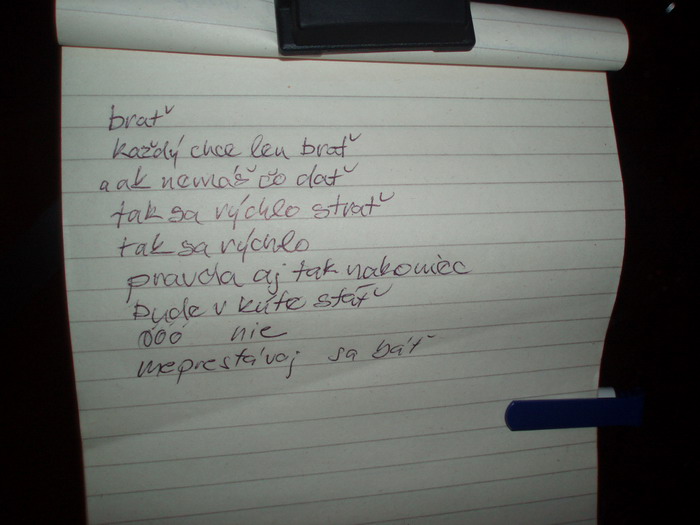 brať
každý chce len brať
a ak nemáš čo dať
tak sa rýchlo strať
tak sa rýchlo
pravda aj tak nakoniec
bude v kúte stáť
óóó nie
neprestávaj sa báť